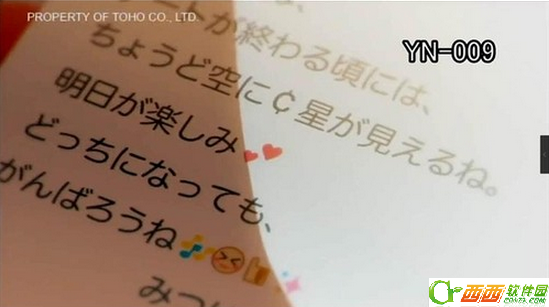 PROPERTY OF TOHO CO., LTD.
YN-009
ートが終わる頃には、
ちょうど空に¢星が見えるね。
明日が楽しみ
どっちになっても、
がんばろうね
みつ
西西软件园